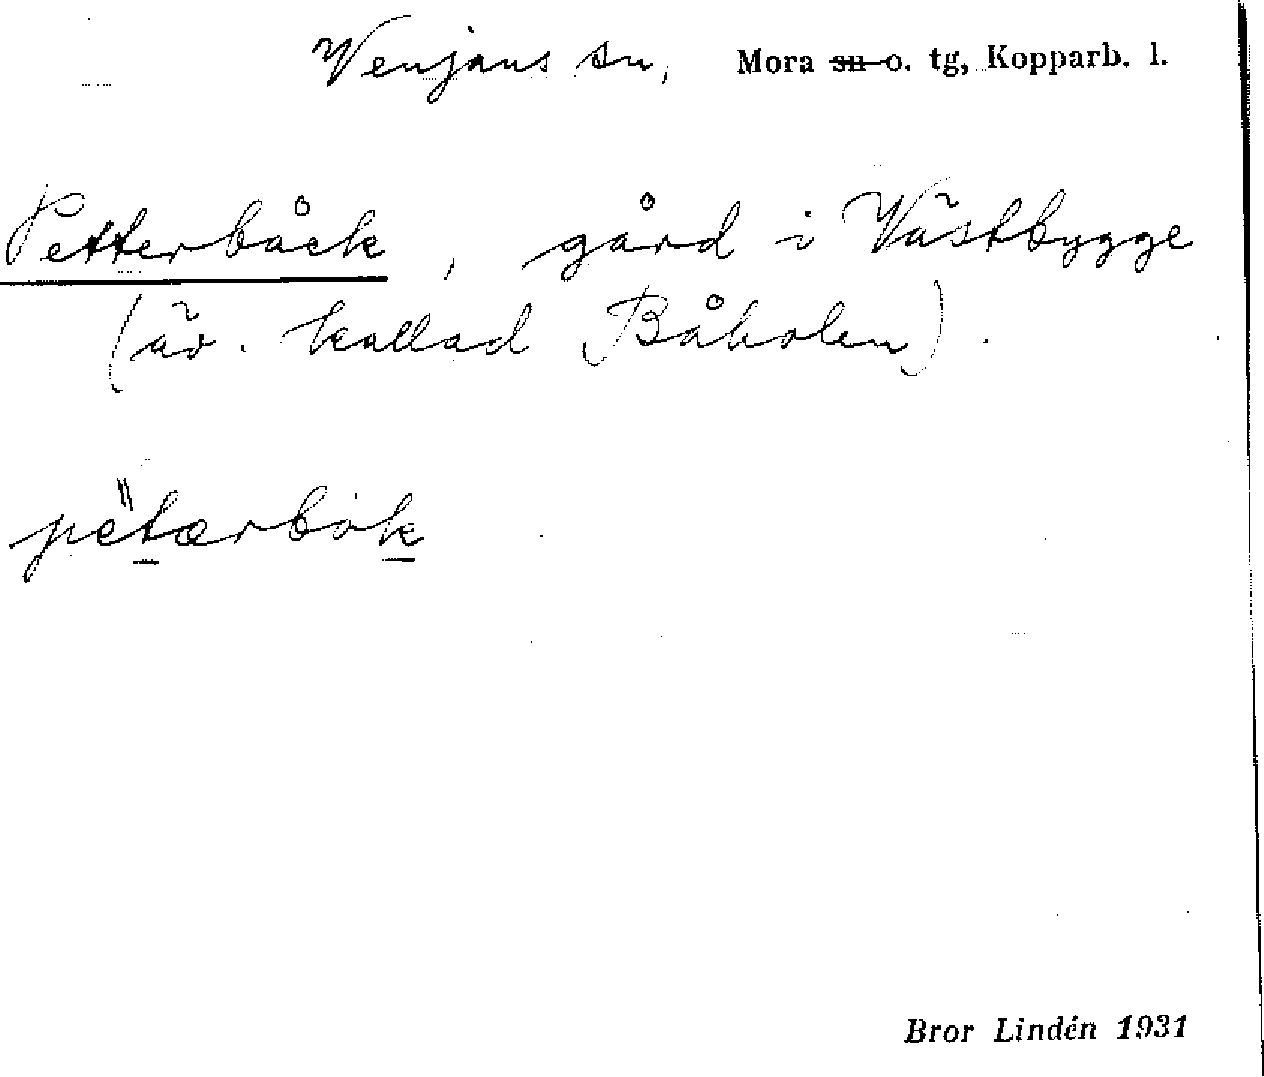 Venjans sn, Mora sn o. tg, Kopparb. l.
Petterbåck, gård i Västbygge
(äv. kallad Båholen).
pètærbòk
Bror Lindén 1931